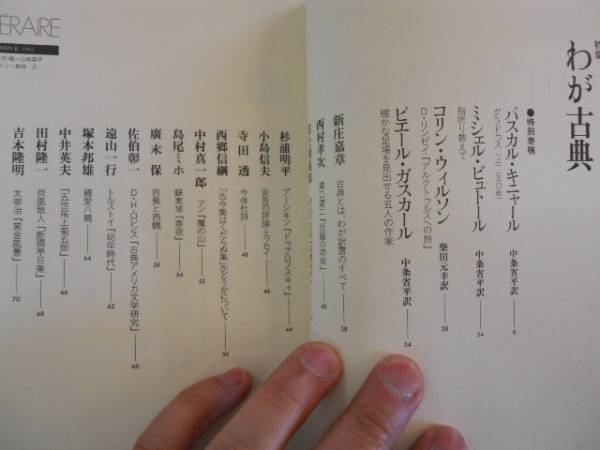 特集
わが古典
●特別寄稿
パスカル・キニャール
グラドゥス
中条省平訳 8
ミシェル・ビュトール
指折り数えて
中条省平訳 24
コリン・ウィルソン
D・リンゼイ『アルクトゥルスへの旅』
柴田元幸訳 28
ピエール・ガスカール
確かな足場を見出せる五人の作家
中条省平訳 34
新庄嘉章
古典とは、わが記憶のすべて 38
西村孝次
杉浦明平
プーシキン『ドゥブロフスキイ』 44
小島信夫
安吾の評論とエッセイ 46
寺田透
今体杜詩 48
西郷信綱
『古今集はくだらぬ集』かどうかについて 50
中村真一郎
マン『魔の山』 52
島尾ミホ
蘇東坡『春夜』 54
廣末保
芭蕉と西鶴 58
佐伯彰一
D・H・ロレンス『古典アメリカ文学研究』 60
遠山一行
トルストイ『幼年時代』 62
塚本邦雄
鍾愛八鶴 64
中井英夫
『五世尾上菊五郎』 66
田村隆一
荷風散人『断腸亭日乗』 68
吉本隆明
太宰治『黄金風景』 70
ÉRAIRE